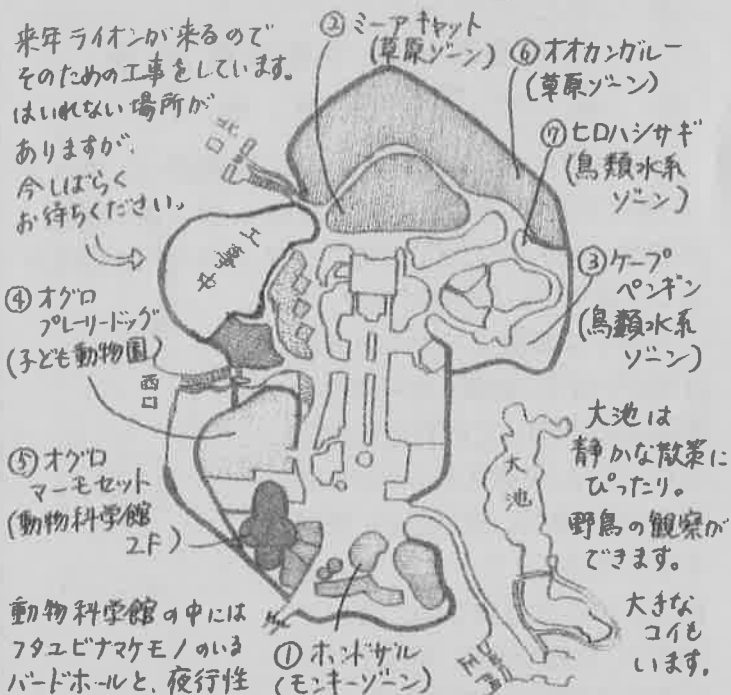 来年ライオンが来るので
そのための工事をしています。
はいれない場所が
ありますが、
今しばらく
お待ちください。
②ミーアキャット
(草原ゾーン)
⑥オオカンガルー
(草原ゾーン)
⑦ヒロハシサギ
(鳥類水系
ゾーン)
北口
工事中
③ケープ
ペンギン
(鳥類水系
ゾーン)
④オグロ
プレーリードッグ
(子ども動物園)
西口
⑤オグロ
マーモセット
(動物科学館
2F)
大池
大池は
静かな散策に
ぴったり。
野鳥の観察が
できます。
大きな
コイも
います。
動物科学館の中には
フタユビナマケモノのいる
バードホールと、夜行性
①ホンドザル
(モンキーゾーン)
正門